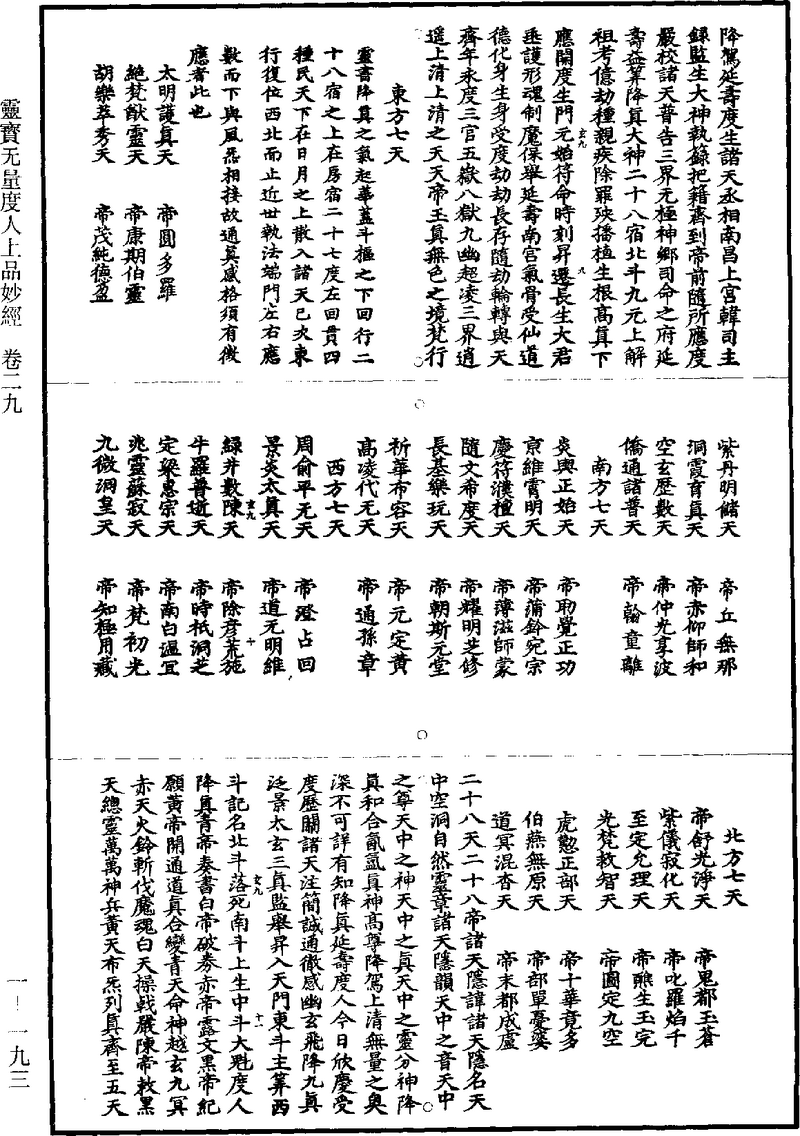 降駕延壽度生諸天丞相南昌上宮韓司主
錄監生大神執籙把籍齎到帝前隨所應度
嚴校諸天普告三界无極神鄉司命之府延
壽益筭降真大神二十八宿北斗九元上解
祖考億劫種親疾除罪殃播植生根高真下
應開度生門元始符命時刻昇遷長生大君
垂護形魂制魔保舉延壽南宮氣骨受仙道
德化身生身受度劫劫長存隨劫輪轉與天
齊年永度三官五嶽八獄九幽超凌三界逍
遥上清上清之天天帝玉真無色之境梵行
東方七天
靈書降真之氣起華蓋斗樞之下回行二
十八宿之上在房宿二十七度左回貫四
種民天下在日月之上散入諸天已次東
行復位西北而止近世執法端門左右應
數而下與風炁相接故通冥感格須有徵
應者此也
太明護真天 帝圓多羅
絕梵猷靈天 帝康期伯靈
胡樂萃秀天 帝茂純德盈
紫丹明儲天 帝丘無那
洞霞育真天 帝赤仰師和
空玄歷數天 帝仲光享波
僑通諸普天 帝翰童離
南方七天
炎輿正始天 帝刕覺正功
京維霄明天 帝蒲鈴宛宗
慶符濮檀天 帝薄滋師蒙
隨文希度天 帝耀明芝修
長基樂玩天 帝朝斯元堂
祈華布容天 帝元定黃
高凌代无天 帝通孫章
西方七天
周俞平无天 帝澄占回
景炎太真天 帝道元明維
緑井數陳天 帝除彦荒施
牛羅普遊天 帝時祇洞芝
定梁思宗天 帝南白溫宜
兆靈蘇寂天 帝梵初光
九微洞皇天 帝知極用藏
北方七天
帝舒光淨天 帝鬼都玉蒼
紫儀寂化天 帝叱羅焰千
至定允理天 帝醮生玉完
光梵教智天 帝圖定九空
虎懃正部天 帝十華竟多
伯蕪無原天 帝部單憂䕫
道冥混杳天 帝末都成盧
二十八天二十八帝諸天隱諱諸天隱名天
中空洞自然靈章諸天隱韻天中之音天中
之尊天中之神天中之真天中之靈分神降
真和合氤氳真神高尊降駕上清無量之奥
深不可詳有知降真延壽度人今日欣慶受
度歷關諸天注簡誠通徹感幽玄飛降九真
泛景太玄三真監舉昇入天門東斗主筭西
斗記名北斗落死南斗上生中斗大魁度人
降真青帝奏書白帝破券赤帝露文黑帝紀
願黃帝開通道真合變青天命神越玄九冥
赤天火鈴斬伐魔魂白天操戟嚴陳帝敕黑
天總靈萬萬神兵黃天布炁列真齊至五天
靈寶无量度人上品妙經 卷二九
一—一九三